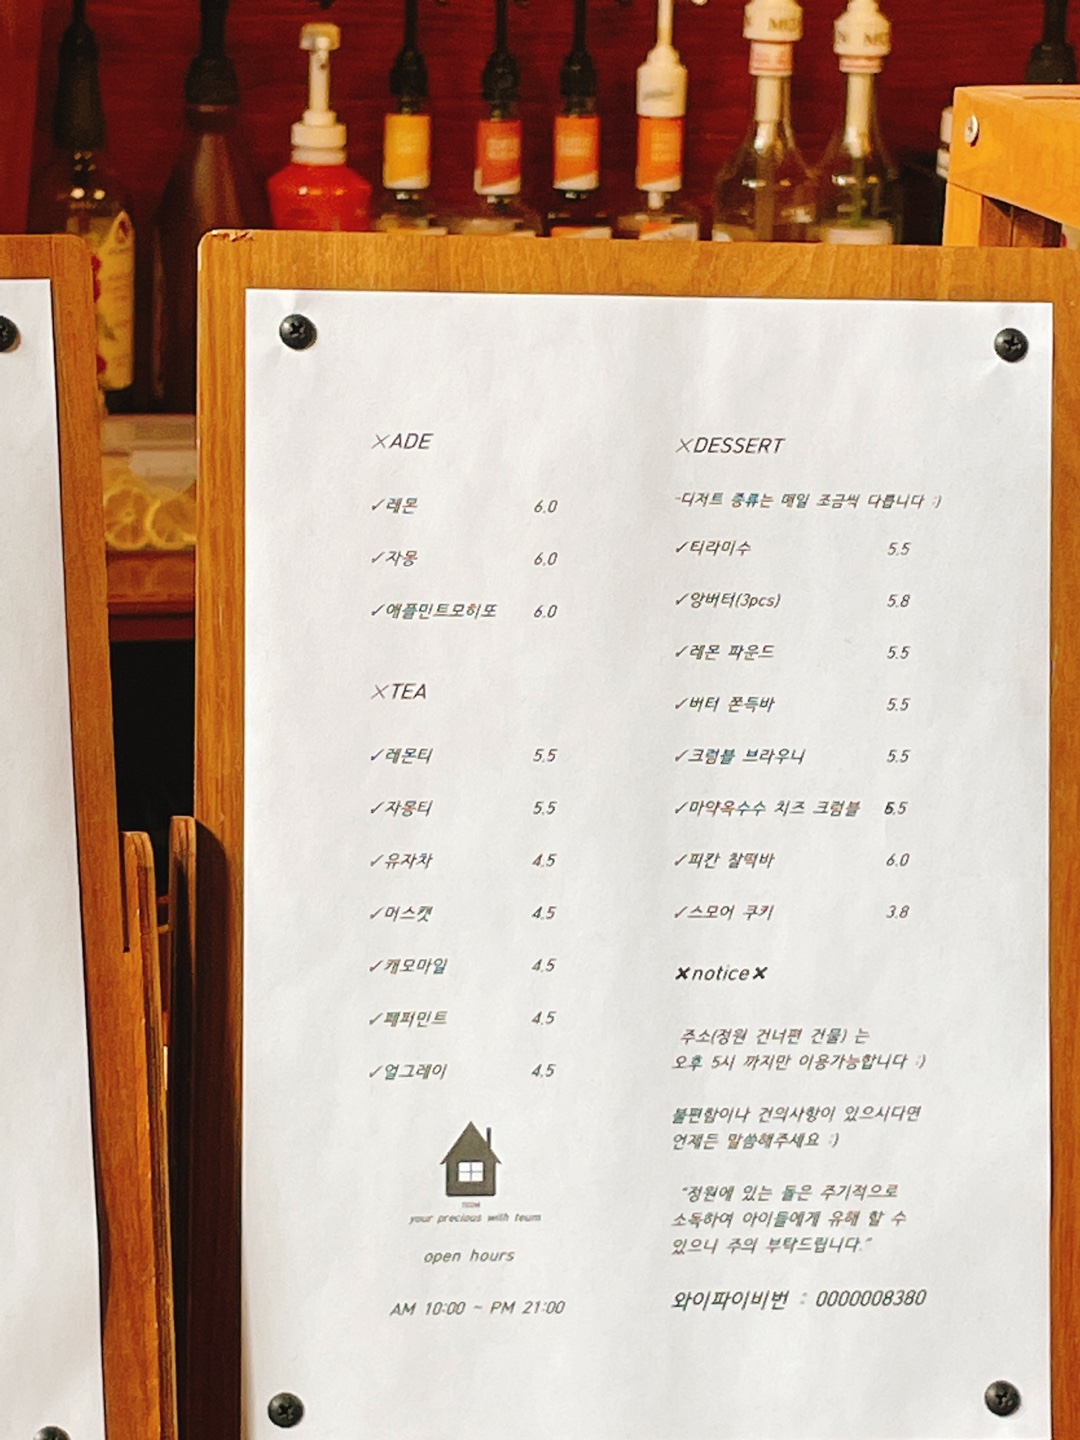 ×ADE
✓레몬 6.0
✓자몽 6.0
✓애플민트모히또 6.0
×TEA
✓레몬티 5.5
✓자몽티 5.5
✓유자차 4.5
✓머스캣 4.5
✓캐모마일 4.5
✓페퍼민트 4.5
✓얼그레이 4.5
TEUM
your precious with teum
open hours
AM 10:00 ~ PM 21:00
×DESSERT
-디저트 종류는 매일 조금씩 다릅니다 :)
✓티라미수 5.5
✓앙버터(3pcs) 5.8
✓레몬 파운드 5.5
✓버터 쫀득바 5.5
✓크럼블 브라우니 5.5
✓마약옥수수 치즈 크럼블 6.5
✓피칸 찰떡바 6.0
✓스모어 쿠키 3.8
×notice×
주소(정원 건너편 건물) 는
오후 5시 까지만 이용가능합니다 :)
불편함이나 건의사항이 있으시다면
언제든 말씀해주세요 :)
"정원에 있는 돌은 주기적으로
소독하여 아이들에게 유해 할 수
있으니 주의 부탁드립니다."
와이파이비번 : 0000008380